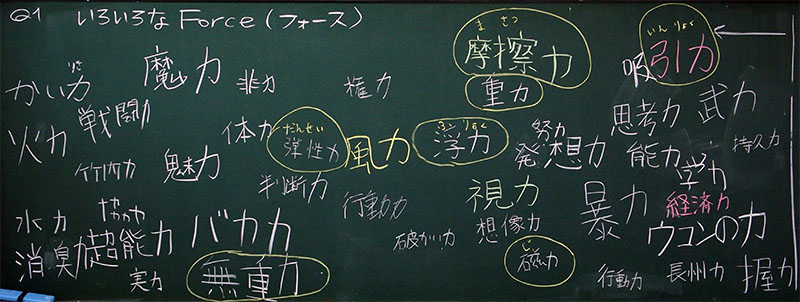 Q1 いろいろな Force (フォース)
まさつ
摩擦力
いんりょく
吸引力
かい力
魔力
非力
権力
重力
戦闘力
火力
竹内力
魅力
体力
だんせい
弾性力
風力
ふりょく
浮力
努力
発想力
思考力
武力
能力
持久力
学力
判断力
行動力
視力
想像力
暴力
経済力
水力
超能力
バカ力
破かい力
ウコンの力
消臭力
実力
無重力
じ
磁力
行動力
長州力
握力